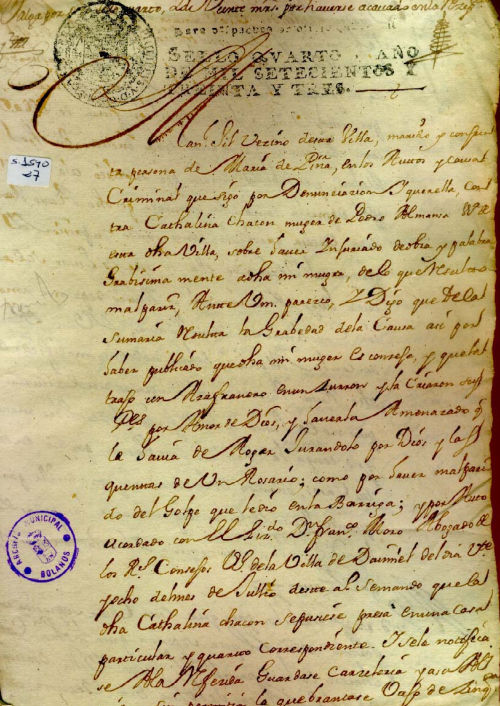 Valga por el Sello quarto, de Veinte mrs. por haverse acavado en lo
PARA DESPACHOS DE OFICIO
SELLO QVARTO, AÑO
DE MIL SETECIENTOS Y
TREINTA Y TRES.
S.1570
27
Gil Vezino desta Villa, marido y conjun
ta persona de Maria de Pina, en los Auttos y causa
Criminal que sigo por Denunciazion y querella, con
tra Cathalina Chacon muger de Pedro Almansa Vº de
esta dha Villa, sobre haver Injuriado de obra y palabra
Grabisima mente a dha mi muger, de lo que Resulto
malparir, Antte Vm. parezco, Y Digo que de la
sumaria Resulta la Grabedad de la Causa asi por
haber publicado que dha mi muger es conseja, y que la
trajo un Azafranero en un zurron y la Criaron sus
Pes por Amor de Dios, y haverla Amenazado q
la havia de Mojar Jurandolo por Dios y las
quenttas de Un Rosario; como por haver malpari
do del Golpe que le dio en la Barriga; y por Auto
Acordado con el Lizdo Dn Franco Moro Abogado de
los Rs Consejos Vº de la Villa de Daimiel del dia Vte
y ocho del mes de Jullio deste año se mando que la
dha Cathalina chacon se pusiese presa en una Casa
particular y quarto Correspondiente. Y se le notificà
se a la Referida Guardase Carzeleria
la quebrantase
ARCHIVO MUNICIPAL
BOLAÑOS